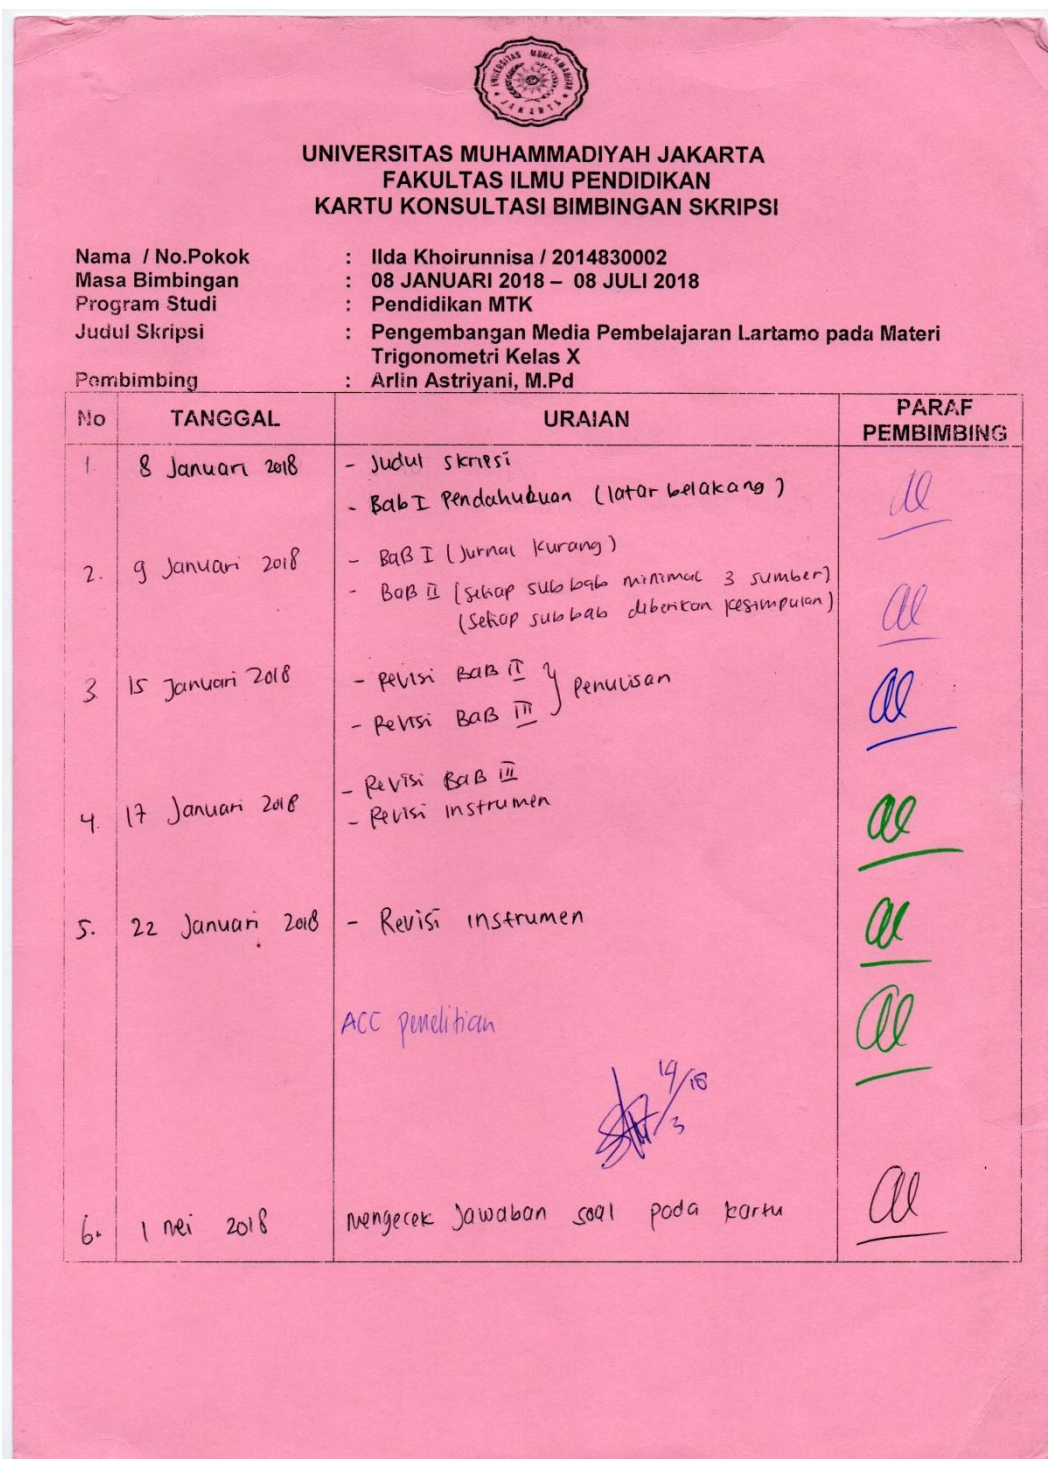 UNIVERSITAS MUHAMMADIYAH JAKARTA
UNIVERSITAS MUHAMMADIYAH JAKARTA
FAKULTAS ILMU PENDIDIKAN
KARTU KONSULTASI BIMBINGAN SKRIPSI
Nama / No.Pokok : Ilda Khoirunnisa / 2014830002
Masa Bimbingan : 08 JANUARI 2018 – 08 JULI 2018
Program Studi : Pendidikan MTK
Judul Skripsi : Pengembangan Media Pembelajaran Lartamo pada Materi
Trigonometri Kelas X
Pembimbing : Arlin Astriyani, M.Pd
No TANGGAL URAIAN PARAF PEMBIMBING
1. 8 Januari 2018 - Judul skripsi
- Bab I Pendahuluan (latar belakang)
2. 9 Januari 2018 - BaB I (Jurnal kurang)
- BaB II (setiap sub bab minimal 3 sumber)
(setiap sub bab diberikan kesimpulan)
3. 15 Januari 2018 - Revisi BaB II } Penulisan
- Revisi BaB III
4. 17 Januari 2018 - Revisi BaB III
- Revisi instrumen
5. 22 Januari 2018 - Revisi instrumen
ACC penelitian
19/18
/3
6. 1 Mei 2018 Mengecek Jawaban soal pada kartu